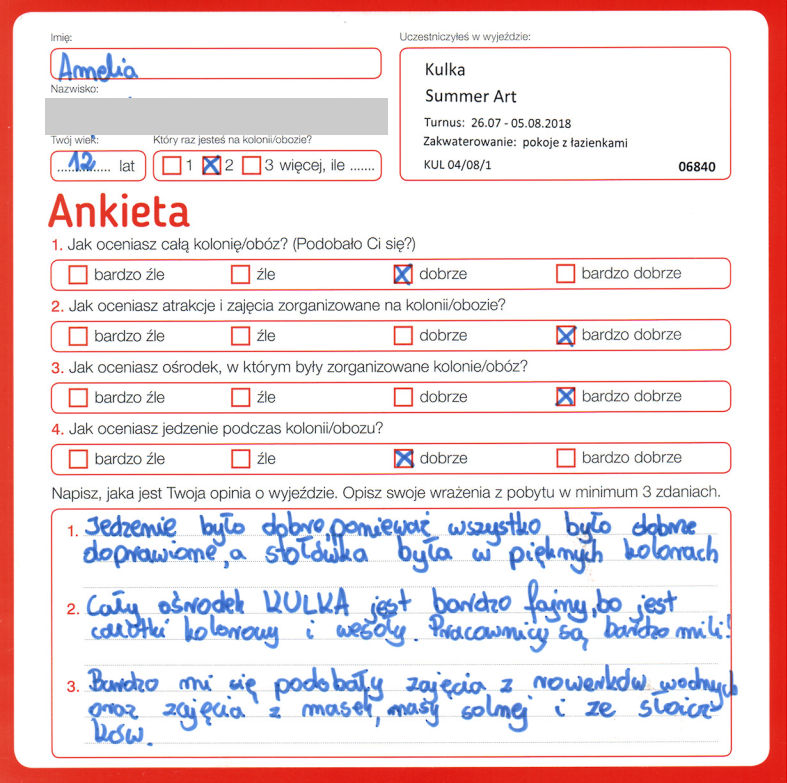 Imię:
Amelia
Nazwisko:
Twój wiek:
Który raz jesteś na kolonii/obozie?
12 lat
1 2 3 więcej, ile .......
Uczestniczyłeś w wyjeździe:
Kulka
Summer Art
Turnus: 26.07 - 05.08.2018
Zakwaterowanie: pokoje z łazienkami
KUL 04/08/1 06840
Ankieta
1. Jak oceniasz całą kolonię/obóz? (Podobało Ci się?)
bardzo źle źle dobrze bardzo dobrze
2. Jak oceniasz atrakcje i zajęcia zorganizowane na kolonii/obozie?
bardzo źle źle dobrze bardzo dobrze
3. Jak oceniasz ośrodek, w którym były zorganizowane kolonie/obóz?
bardzo źle źle dobrze bardzo dobrze
4. Jak oceniasz jedzenie podczas kolonii/obozu?
bardzo źle źle dobrze bardzo dobrze
Napisz, jaka jest Twoja opinia o wyjeździe. Opisz swoje wrażenia z pobytu w minimum 3 zdaniach.
1. Jedzenie było dobre, ponieważ wszystko było dobrze
doprawione, a stołówka była w pięknych kolorach
2. Cały ośrodek KULKA jest bardzo fajny, bo jest
calutki kolorowy i wesoły. Pracownicy są bardzo mili!
3. Bardzo mi się podobały zajęcia z rowerków wodnych
oraz zajęcia z masek, masy solnej i ze słoicz
ków.